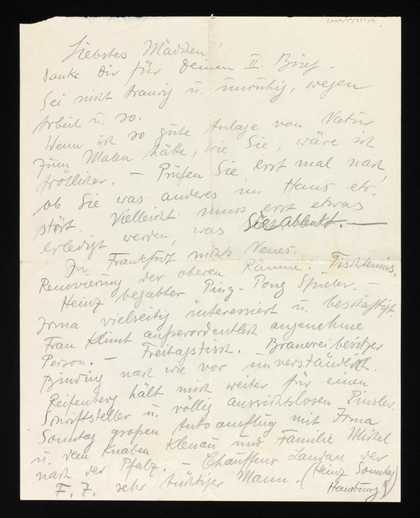 Liebstes Mädchen!
Danke Dir für Deinen II Brief.
Sei nicht traurig u. unruhig, wegen
Arbeit u. so.
Wenn ich so gute Anlage von Natur
zum Malen hätte, wie Sie, wäre ich
fröhlicher. – Prüfen Sie erst mal nach,
ob Sie was anderes im Haus etc.
stört. Vielleicht muss erst etwas
erledigt werden, was Sie ablenkt. —
In Frankfurt nichts Neues.
Renovierung der oberen Räume. – Tischtennis.
Heinz begabter Ping-Pong Spieler. –
Irma vielseitig interessiert u. beschäftigt
Frau Klimt ausserordentlich angenehme
Person. – Freitagstisch. – Brauereibesitzer
Binding nach wie vor unverständlich.
Reifenberg hält mich weiter für einen
Schriftsteller u. völlig aussichtslosen Pinsler.
Sonntag großen Autoausflug mit Irma
u. dem Knaben Klenau und Familie
nach der Pfalz. – Chauffeur
F. Z. sehr tüchtiger Mann. (Heinz Sonntag
Hamburg)